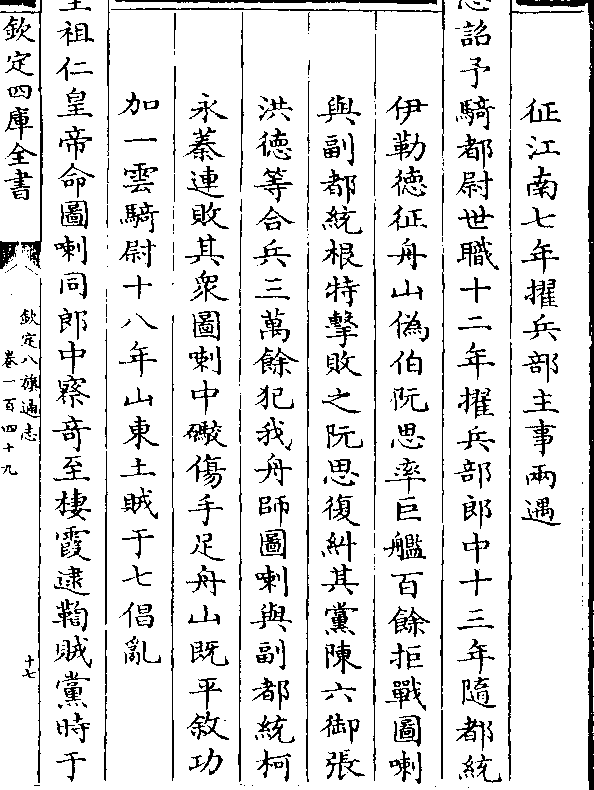 征江南七年擢兵部主事兩遇
恩詔予騎都尉世職十二年擢兵部郎中十三年隨都統
伊勒德征舟山偽伯阮思率巨艦百餘拒戰圖喇
與副都統根特擊敗之阮思復糾其黨陳六御張
洪德等合兵三萬餘犯我舟師圖喇與副都統柯
永蓁連敗其衆圖喇中礮傷手足舟山既平敘功
加一雲騎尉十八年山東土賊于七倡亂
聖祖仁皇帝命圖喇同郎中察竒至棲霞逮鞫賊黨時于
欽定四庫全書
欽定八旗通志
卷一百四十九
十七